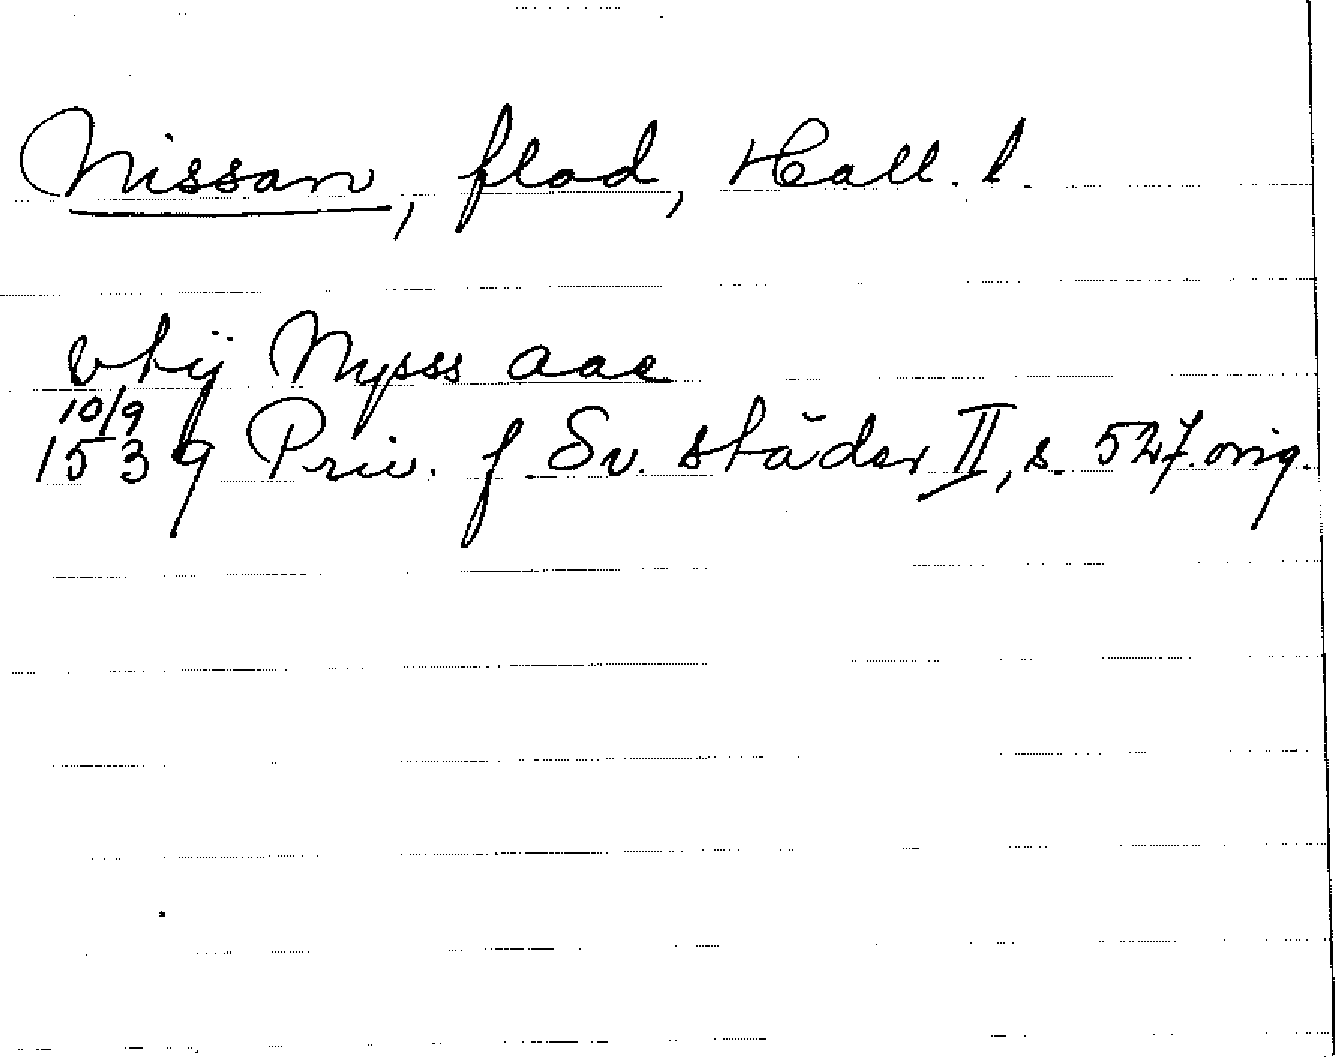 Nissan, flod, Hall. l.
vhij Nysss aae
10/9
1539 Priv. f. Sv. städer II, s. 527. orig.